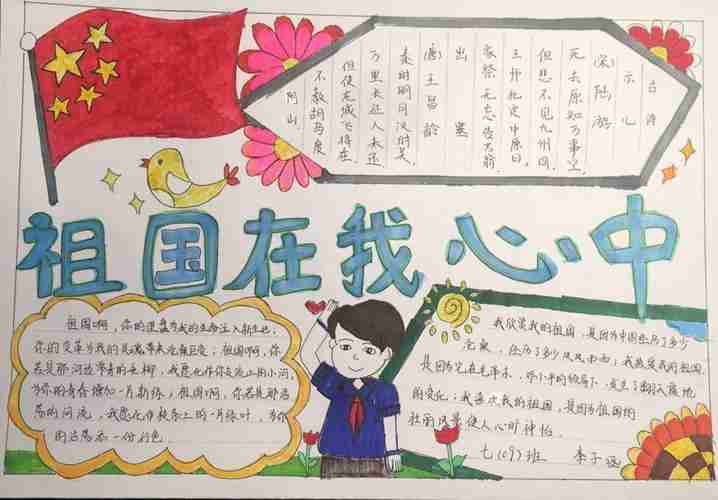 古诗
示儿
(宋)陆游
死去原知万事空
但悲不见九州同,
王师北定中原日,
家祭无忘告乃翁.
出塞
(唐)王昌龄
秦时明月汉时关
万里长征人未还
但使龙城飞将在
不教胡马度
阴山
祖国在我心中
祖国啊，你的为我的生命注入新生机；
你的变革为我的灵魂带来沧桑巨变；祖国啊，你
若是那河边常青的垂柳，我愿化作你上的小河
为你的青春增加一片新绿，祖国啊，你若是那浩
荡的河流，我愿化作枝条上的一片绿叶，为你
的浩荡添一份行色.
我欣赏我的祖国，是因为中国经历了多少
沧桑，经历了多少风风雨雨；我热爱我的祖国
是因为它在毛泽东、邓小平的领导下，发生了翻天覆地
的变化；我喜欢我的祖国，是因为祖国的
壮丽风景使人心旷神怡。
七(09)班 李子